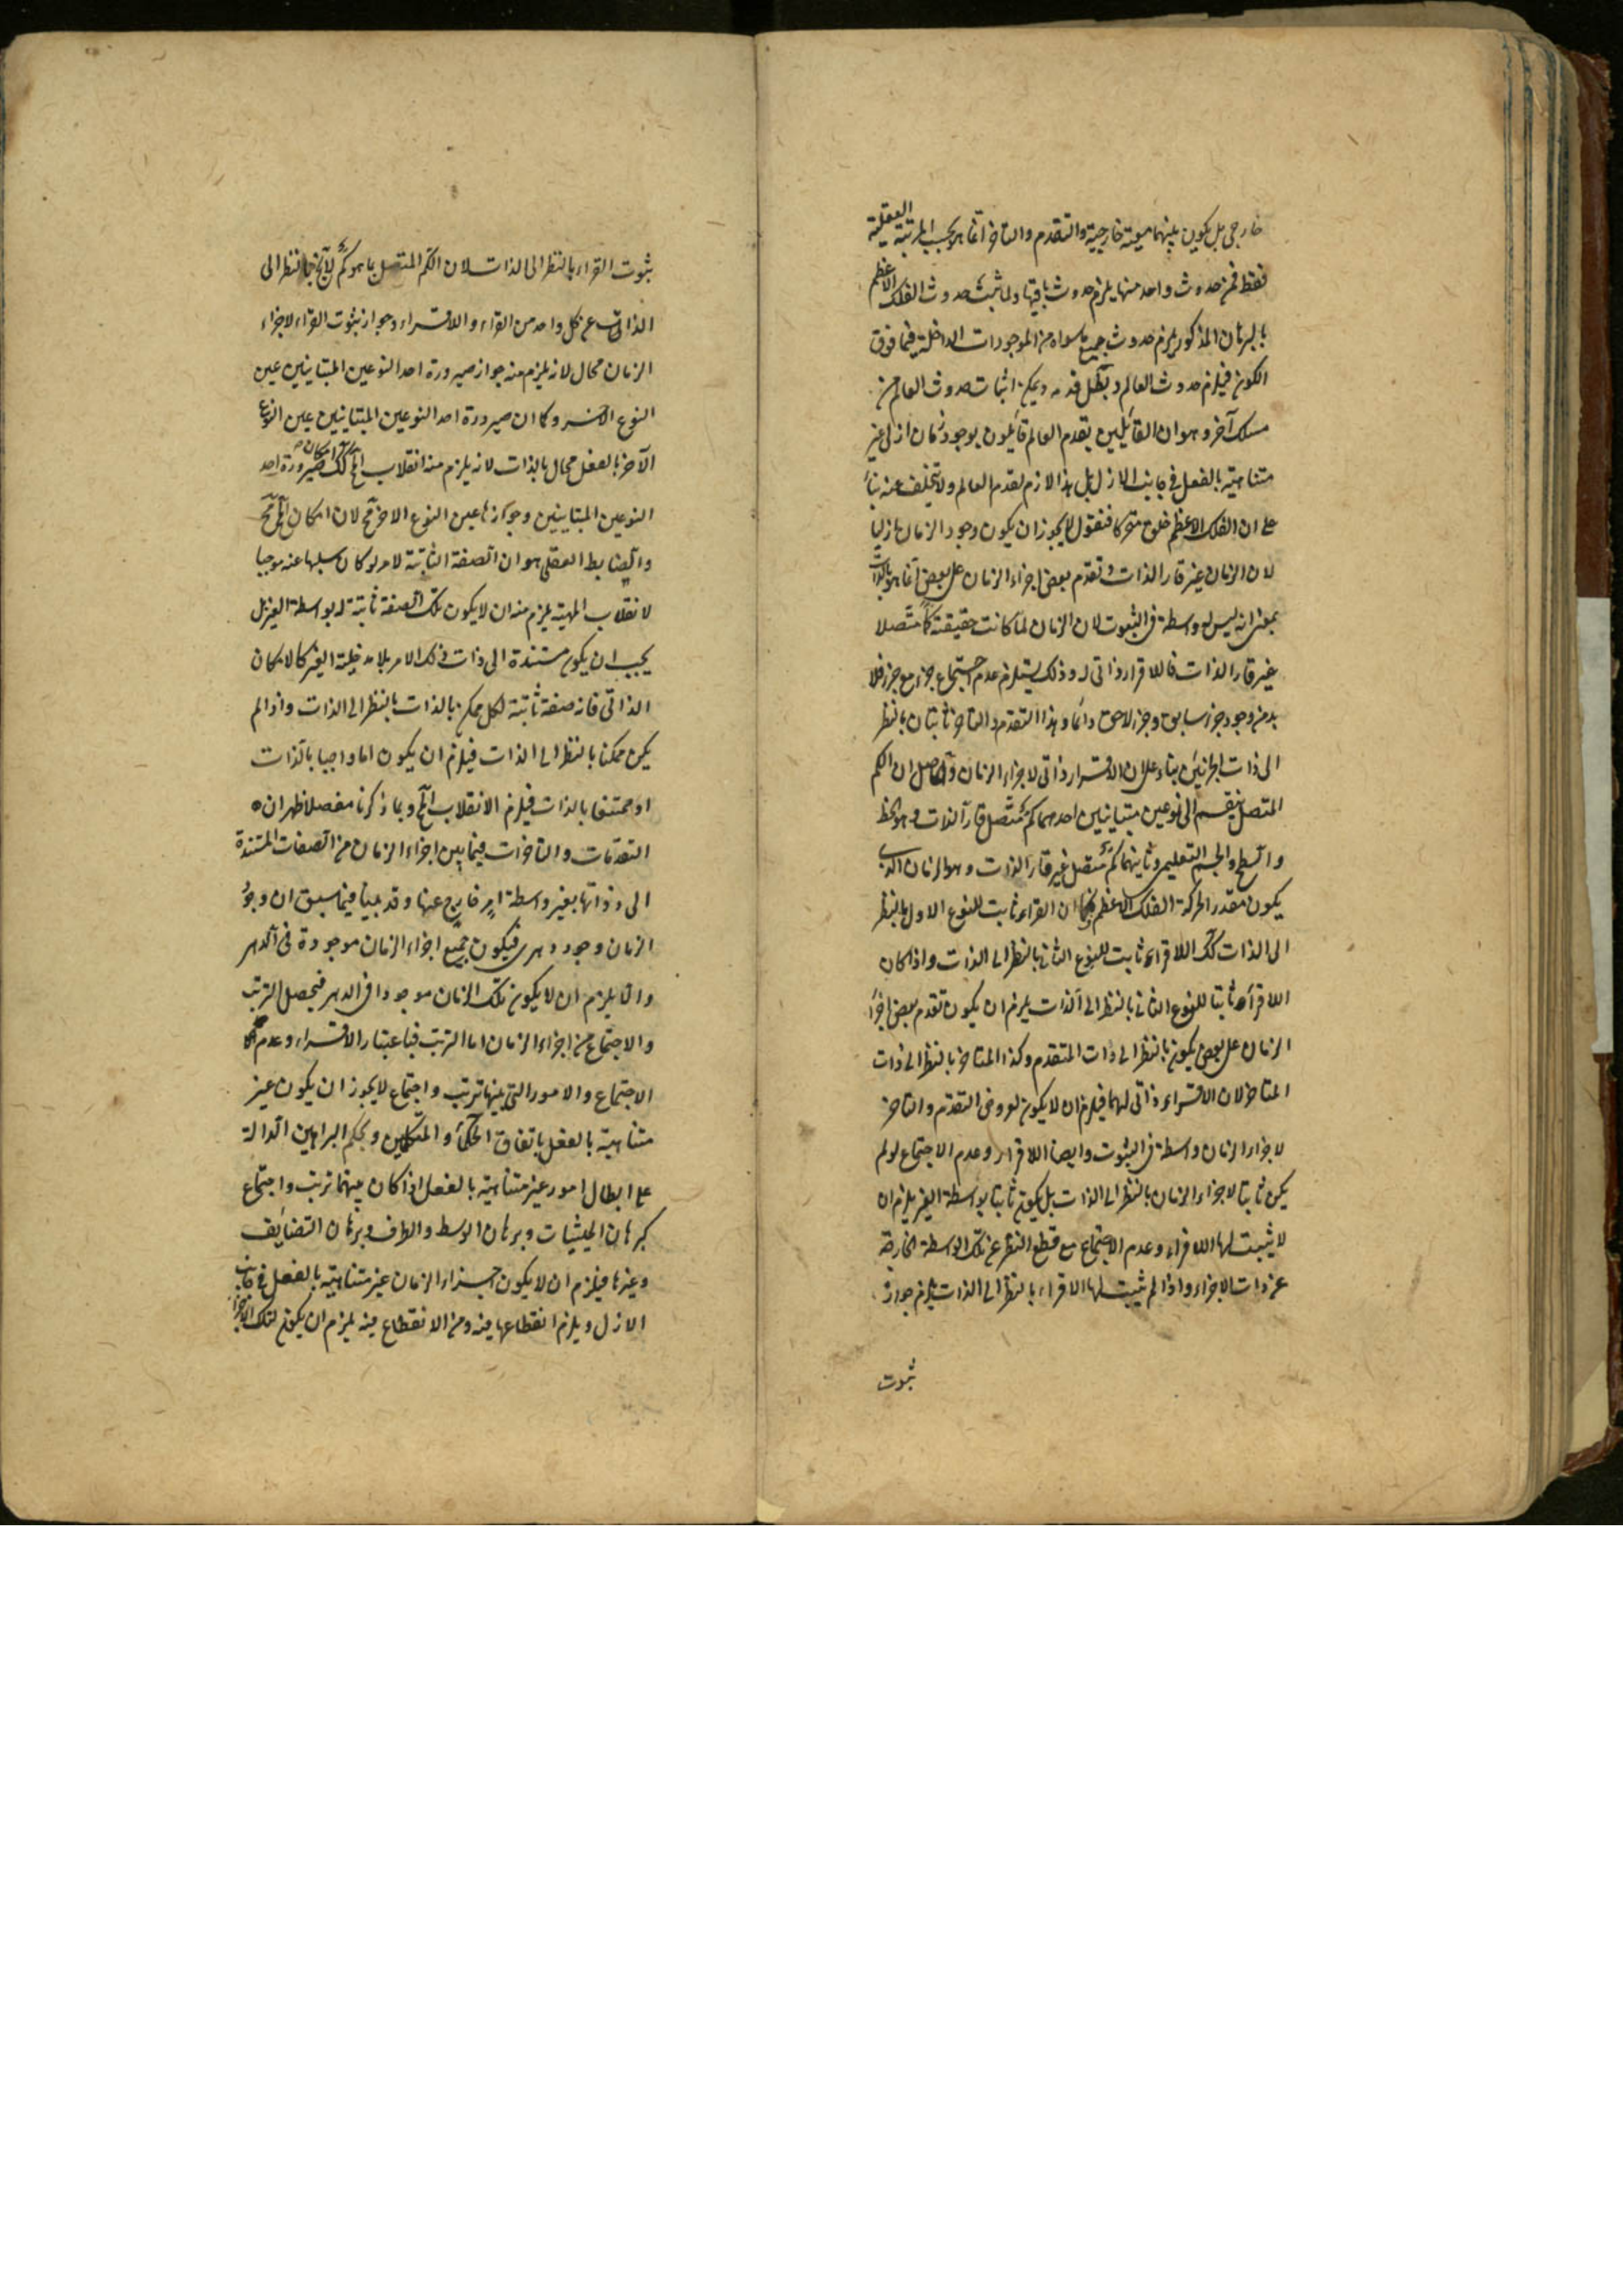 خارجى بل يكون بينهما معية خارجية والتقدم والتاخر انما هو بحسب المرتبة العقلية
فقط فمن حدوث واحد منها يلزم حدوث باقيها ولما ثبت حدوث الفلك الاعظم
بالبرهان المذكور يلزم حدوث جميع ما سواه من الموجودات الداخلة فيما فوق
الكون فيلزم حدوث العالم وبطل قدمه ويمكن اثبات حدوث العالم من
مسلك آخر وهو ان القائلين بقدم العالم قائلون بوجود زمان ازلى غير
متناهية بالفعل فى جانب الازل بل هذا لازم لقدم العالم ولا يتخلف عنه بناء
على ان الفلك الاعظم خلق متحركا فنقول لا يجوز ان يكون وجود الزمان ازليا
لان الزمان غير قار الذات وتقدم بعض اجزاء الزمان على بعض انما هو بالذات
بمعنى انه ليس له واسطة فى الثبوت لان الزمان لما كانت حقيقته كما متصلا
غير قار الذات فاللاقرار ذاتى له وذلك يستلزم عدم اجتماع جزء مع جزء فلا
بد من وجود جزء سابق وجزء لاحق دائما وهذا التقدم والتاخر ثابتان بالنظر
الى ذات الجزئين بناء على ان اللاقرار ذاتى لاجزاء الزمان والحاصل ان الكم
المتصل ينقسم الى نوعين متباينين احدهما كم متصل قار الذات وهو الخط
والسطح والجسم التعليمى وثانيهما كم متصل غير قار الذات وهو الزمان الذى
يكون مقدر الحركة الفلك الاعظم فكما ان القرار ثابت للنوع الاول بالنظر
الى الذات كك اللاقرار ثابت للنوع الثانى بالنظر الى الذات واذا كان
اللاقرار ثابتا للنوع الثانى بالنظر الى الذات يلزم ان يكون تقدم بعض اجزاء
الزمان على بعض يكون بالنظر الى ذات المتقدم وكذا المتاخر بالنظر الى ذات
المتاخر لان اللاقرار ذاتى لهما فيلزم ان لا يكون لعروض التقدم والتاخر
لاجزاء الزمان واسطة فى الثبوت وايضا اللاقرار وعدم الاجتماع لو لم
يكن ثابتا لاجزاء الزمان بالنظر الى الذات بل يكون ثابتا بواسطة الغير يلزم ان
لا يثبت لها اللاقرار وعدم الاجتماع مع قطع النظر عن تلك الواسطة الخارجة
عن ذات الاجزاء واذا لم يثبت لها اللاقرار بالنظر الى الذات يلزم جواز
ثبوت
ثبوت القرار بالنظر الى الذات لان الكم المتصل بما هو كم لا يخ بالنظر الى
الذات عن كل واحد من القرار واللاقرار وجواز ثبوت القرار لاجزاء
الزمان محال لانه يلزم منه جواز صيرورة احد النوعين المتباينين عين
النوع الاخر وكما ان صيرورة احد النوعين المتباينين عين النوع
الآخر بالفعل محال بالذات لانه يلزم منه انقلاب المح كك امكان صيرورة احد
النوعين المتباينين وجوازها عين النوع الاخر مح لان امكان المح مح
والضابط العقلى هو ان الصفة الثابتة لامر لو كان سلبها عنه موجبا
لانقلاب المهية يلزم منه ان لا يكون تلك الصفة ثابتة له بواسطة الغير بل
يجب ان يكون مستندة الى ذات ذلك الامر بلا مدخلية الغير كالامكان
الذاتى فانه صفة ثابتة لكل ممكن بالذات بالنظر الى الذات واذا لم
يكن ممكنا بالنظر الى الذات فيلزم ان يكون اما واجبا بالذات
او ممتنعا بالذات فيلزم الانقلاب المح وبما ذكرنا مفصلا ظهر ان
التقدمات والتاخرات فيما بين اجزاء الزمان من الصفات المستندة
الى ذواتها بغير واسطة امر خارج عنها وقد بينا فيما سبق ان وجود
الزمان وجود دهرى فيكون جميع اجزاء الزمان موجودة فى الدهر
والا يلزم ان لا يكون تلك الزمان موجودا فى الدهر فيحصل الترتب
والاجتماع من اجزاء الزمان اما الترتب فباعتبار اللاقرار وعدم
الاجتماع والامور التى بينها ترتب واجتماع لا يجوز ان يكون غير
متناهية بالفعل باتفاق الحكماء والمتكلمين وبحكم البراهين الدالة
على ابطال امور غير متناهية بالفعل اذا كان بينهما ترتب واجتماع
كبرهان الحيثيات وبرهان الوسط والطرف وبرهان التضايف
وغيرها فيلزم ان لا يكون اجزاء الزمان غير متناهية بالفعل فى جانب
الازل ويلزم انقطاعها فيه ومن الانقطاع فيه يلزم ان يكون لتلك الاجزاء